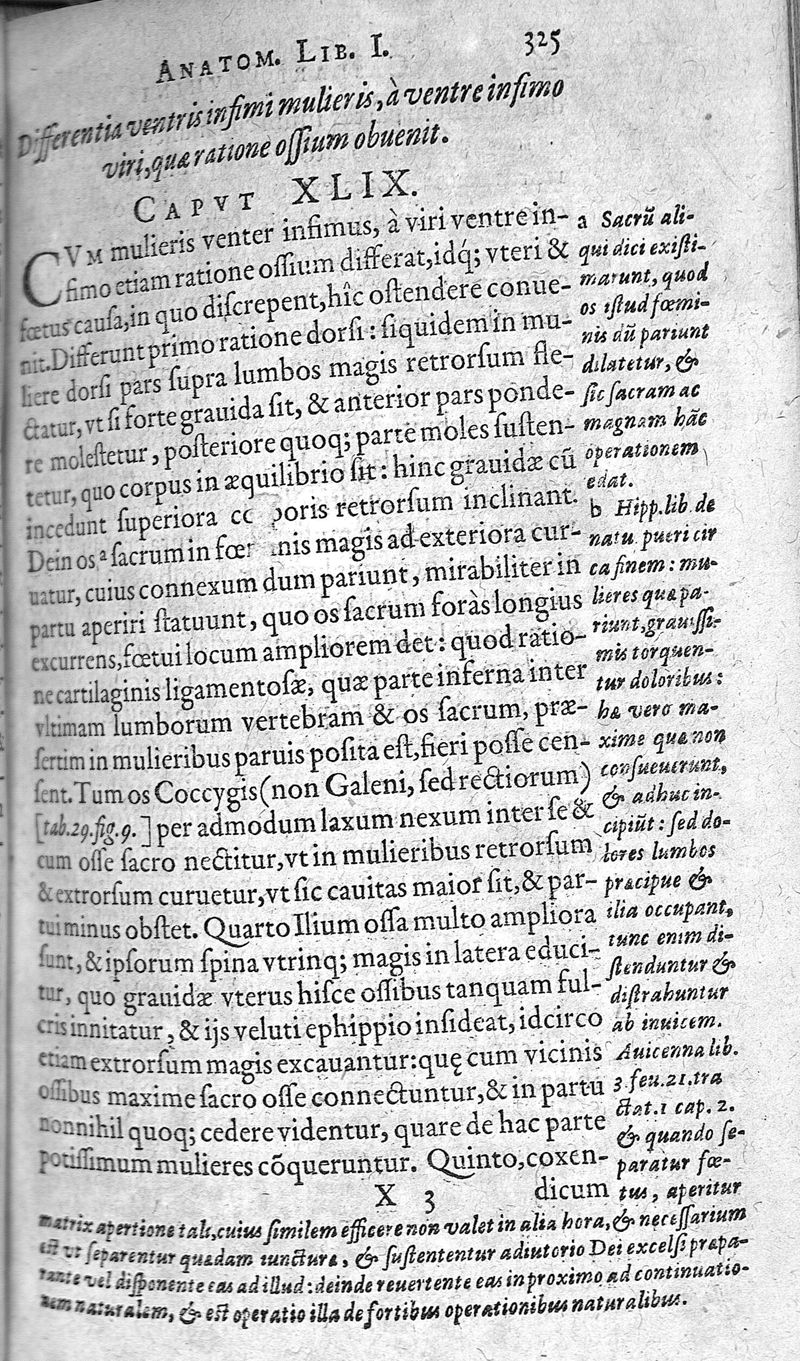 ANATOM. LIB. I. 325
Differentia ventris infimi mulieris, à ventre infimo
viri, quæ ratione ossium obuenit.
CAPVT XLIX.
CVM mulieris venter infimus, à viri ventre in-
fimo etiam ratione ossium differat, idq́; vteri &
fœtus causa, in quo discrepent, hîc ostendere conue-
nit. Differunt primo ratione dorsi: siquidem in mu-
liere dorsi pars supra lumbos magis retrorsum fle-
ctatur, vt si forte grauida sit, & anterior pars ponde-
re molestetur, posteriore quoq; parte moles susten-
tetur, quo corpus in æquilibrio sit: hinc grauidæ cũ
incedunt superiora co poris retrorsum inclinant.
Dein os ᵃ sacrum in fœ inis magis ad exteriora cur-
uatur, cuius connexum dum pariunt, mirabiliter in
partu aperiri statuunt, quo os sacrum foràs longius
excurrens, fœtui locum ampliorem det: quod ratio-
ne cartilaginis ligamentosæ, quæ parte inferna inter
vltimam lumborum vertebram & os sacrum, præ-
sertim in mulieribus paruis posita est, fieri posse cen-
sent. Tum os Coccygis (non Galeni, sed rectiorum)
[tab. 29. fig. 9.] per admodum laxum nexum inter se &
cum osse sacro nectitur, vt in mulieribus retrorsum
& extrorsum curuetur, vt sic cauitas maior sit, & par-
tui minus obstet. Quarto Ilium ossa multo ampliora
sunt, & ipsorum spina vtrinq; magis in latera educi-
tur, quo grauidæ vterus hisce ossibus tanquam ful-
cris innitatur, & ijs veluti ephippio insideat, idcirco
etiam extrorsum magis excauantur: quę cum vicinis
ossibus maxime sacro osse connectuntur, & in partu
nonnihil quoq; cedere videntur, quare de hac parte
potissimum mulieres cõqueruntur. Quinto, coxen-
X 3 dicum
a Sacrũ ali-
qui dici existi-
marunt, quod
os istud fœmi-
nis dũ pariunt
dilatetur, &
sic sacram ac
magnam hãc
operationem
edat.
b Hipp. lib. de
natu. pueri cir
ca finem: mu-
lieres quæ pa-
riunt, grauissi-
mis torquen-
tur doloribus:
hæ vero ma-
xime quæ non
consueuerunt,
& adhuc in-
cipiũt: sed do-
lores lumbos
præcipue &
ilia occupant,
tunc enim di-
stenduntur &
distrahuntur
ab inuicem.
Auicenna lib.
3 fen. 21. tra
ctat. 1 cap. 2.
& quando se-
paratur fœ-
tus, aperitur
matrix apertione tali, cuius similem efficere non valet in alia hora, & necessarium
est vt separentur quædam iuncturæ, & sustententur adiutorio Dei excelsi præpa-
rante vel disponente eas ad illud: deinde reuertente eas in proximo ad continuatio-
nem naturalem, & est operatio illa de fortibus operationibus naturalibus.